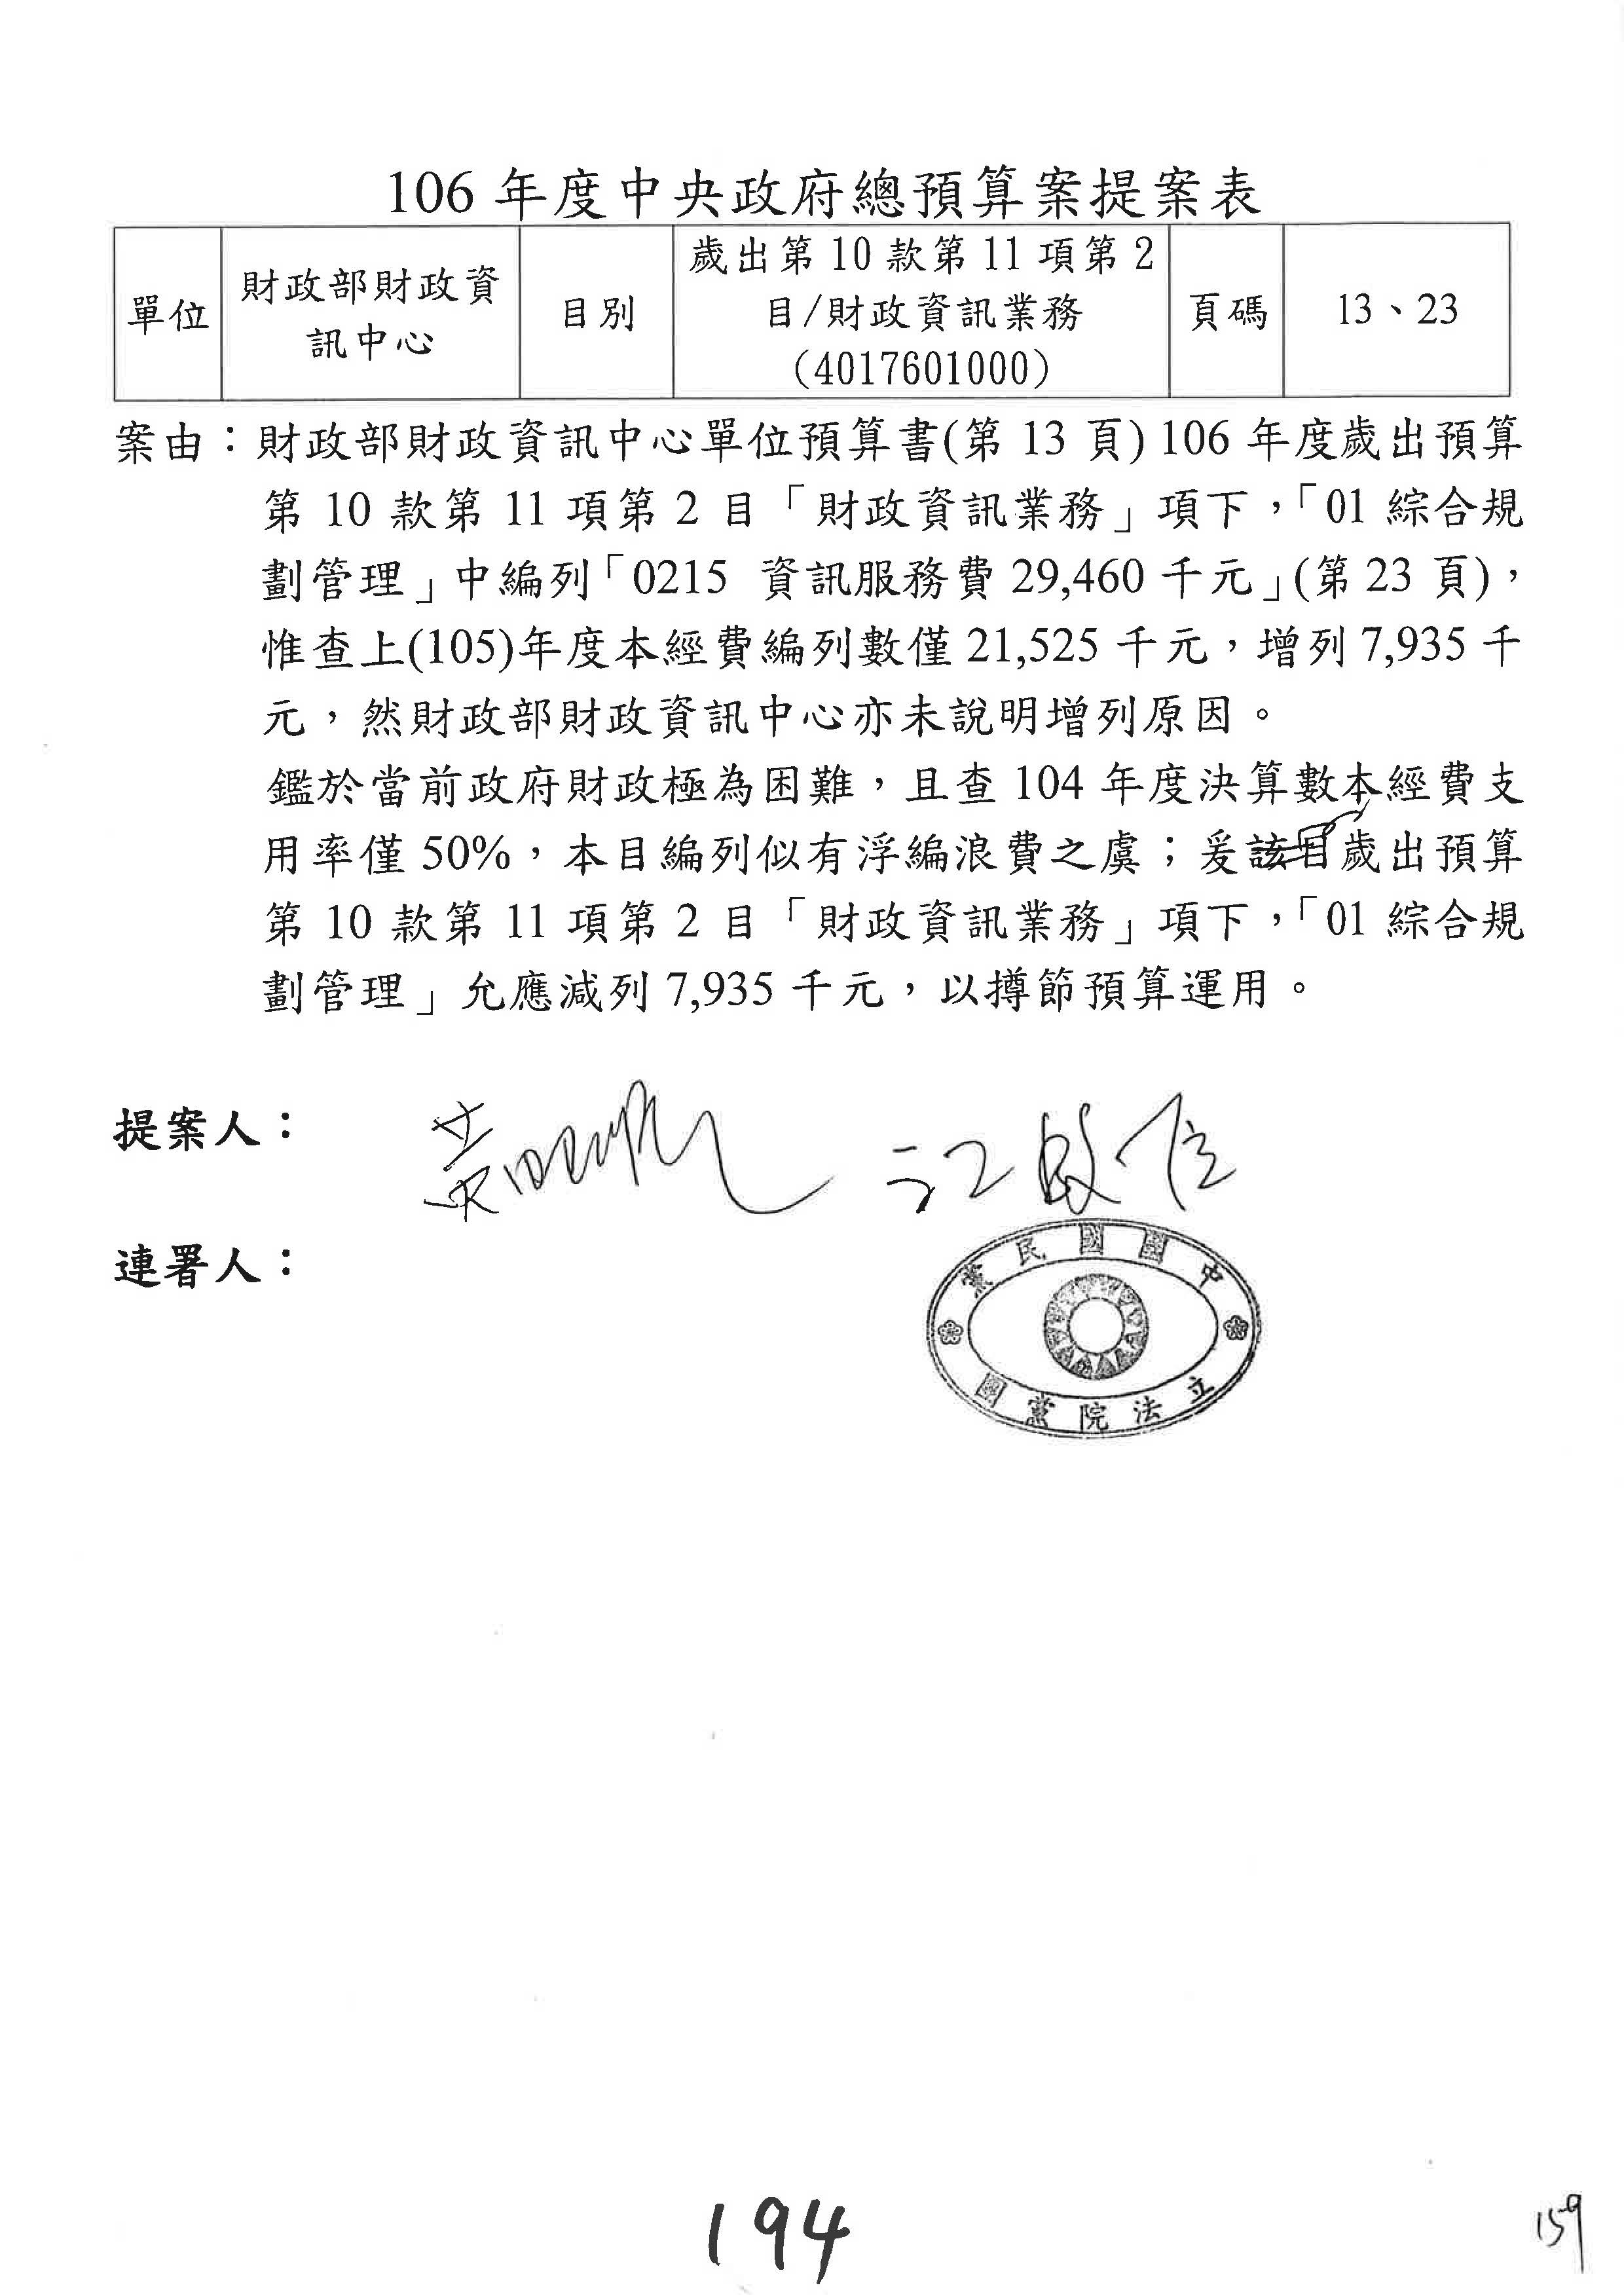 106 年度中央政府總預算案提案表
單位 財政部財政資訊中心 目別 歲出第 10 款第 11 項第 2 目/財政資訊業務(4017601000) 頁碼 13、23
案由：財政部財政資訊中心單位預算書(第 13 頁) 106 年度歲出預算
第 10 款第 11 項第 2 目「財政資訊業務」項下，「01 綜合規
劃管理」中編列「0215 資訊服務費 29,460 千元」(第 23 頁)，
惟查上(105)年度本經費編列數僅 21,525 千元，增列 7,935 千
元，然財政部財政資訊中心亦未說明增列原因。
鑑於當前政府財政極為困難，且查 104 年度決算數本經費支
用率僅 50%，本目編列似有浮編浪費之虞；爰該目歲出預算
第 10 款第 11 項第 2 目「財政資訊業務」項下，「01 綜合規
劃管理」允應減列 7,935 千元，以撙節預算運用。
提案人：
江啟臣
連署人：
中國國民黨
立法院黨團
194
159